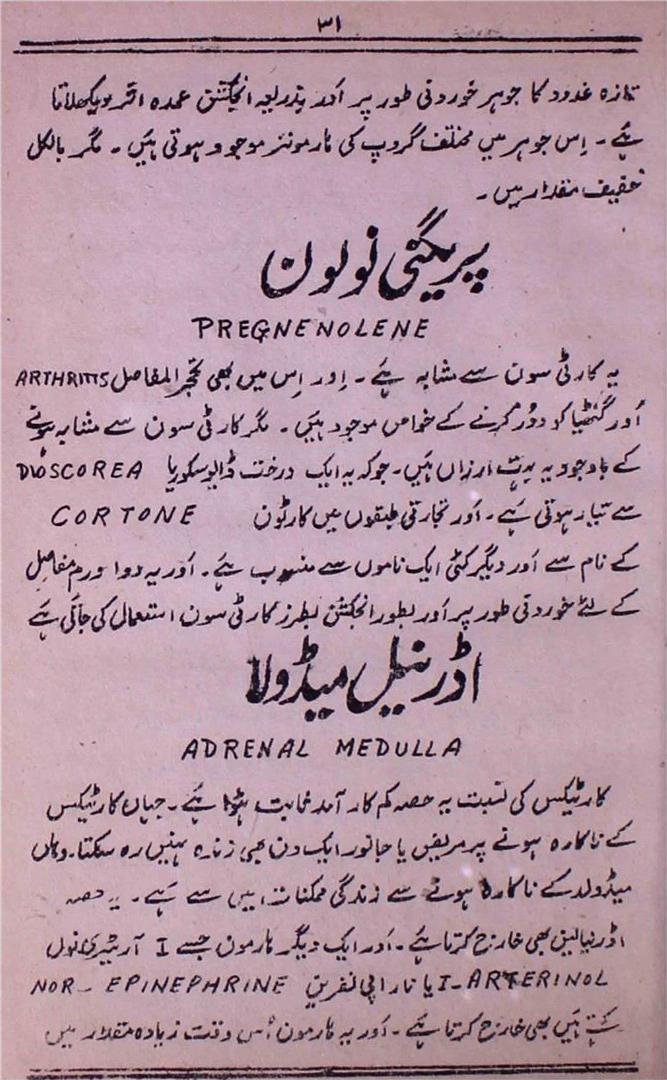 ۳۱
تازہ غدود کا جوہر خوردنی طور پر اور بذریعہ انجکشن عمدہ اثر دیکھلاتا
ہے۔ اِس جوہر میں مختلف گروپ کی ہارمونز موجود ہوتی ہیں۔ مگر بالکل
خفیف مقدار میں۔
پریگنی نولون
PREGNENOLENE
یہ کارٹی سون سے مشابہ ہے۔ اور اِس میں بھی تحجر المفاصل ARTHRITIS
اور گنٹھیا کو دُور کرنے کے خواص موجود ہیں۔ مگر کارٹی سون سے مشابہ ہونے
کے باوجود یہ بہت ارزاں ہیں۔ جو کہ یہ ایک درخت ڈایوسکوریا DIOSCOREA
سے تیار ہوتی ہے۔ اور تجارتی طبقوں میں کارٹون CORTONE
کے نام سے اور دیگر کئی ایک ناموں سے منسوب ہے۔ اور یہ دوا ورم مفاصل
کے لئے خوردنی طور پر اور بطور انجکشن بطرز کارٹی سون استعمال کی جاتی ہے
اڈرنیل میڈولا
ADRENAL MEDULLA
کارٹیکس کی نسبت یہ حصہ کم کار آمد ثابت ہوُا ہے۔ جہاں کارٹیکس
کے ناکارہ ہونے پر مریض یا جانور ایک دن بھی زندہ نہیں رہ سکتا۔ وہاں
میڈولہ کے ناکارہ ہونے سے زندگی ممکنات میں سے ہے۔ یہ حصہ
اڈرنیالین بھی خارج کرتا ہے۔ اور ایک دیگر ہارمون جسے I آرٹیری نول
I-ARTERINOL یا نار اپی نفرین NOR-EPINEPHRINE
کہتے ہیں بھی خارج کرتا ہے۔ اور یہ ہارمون اُس وقت زیادہ مقدار میں